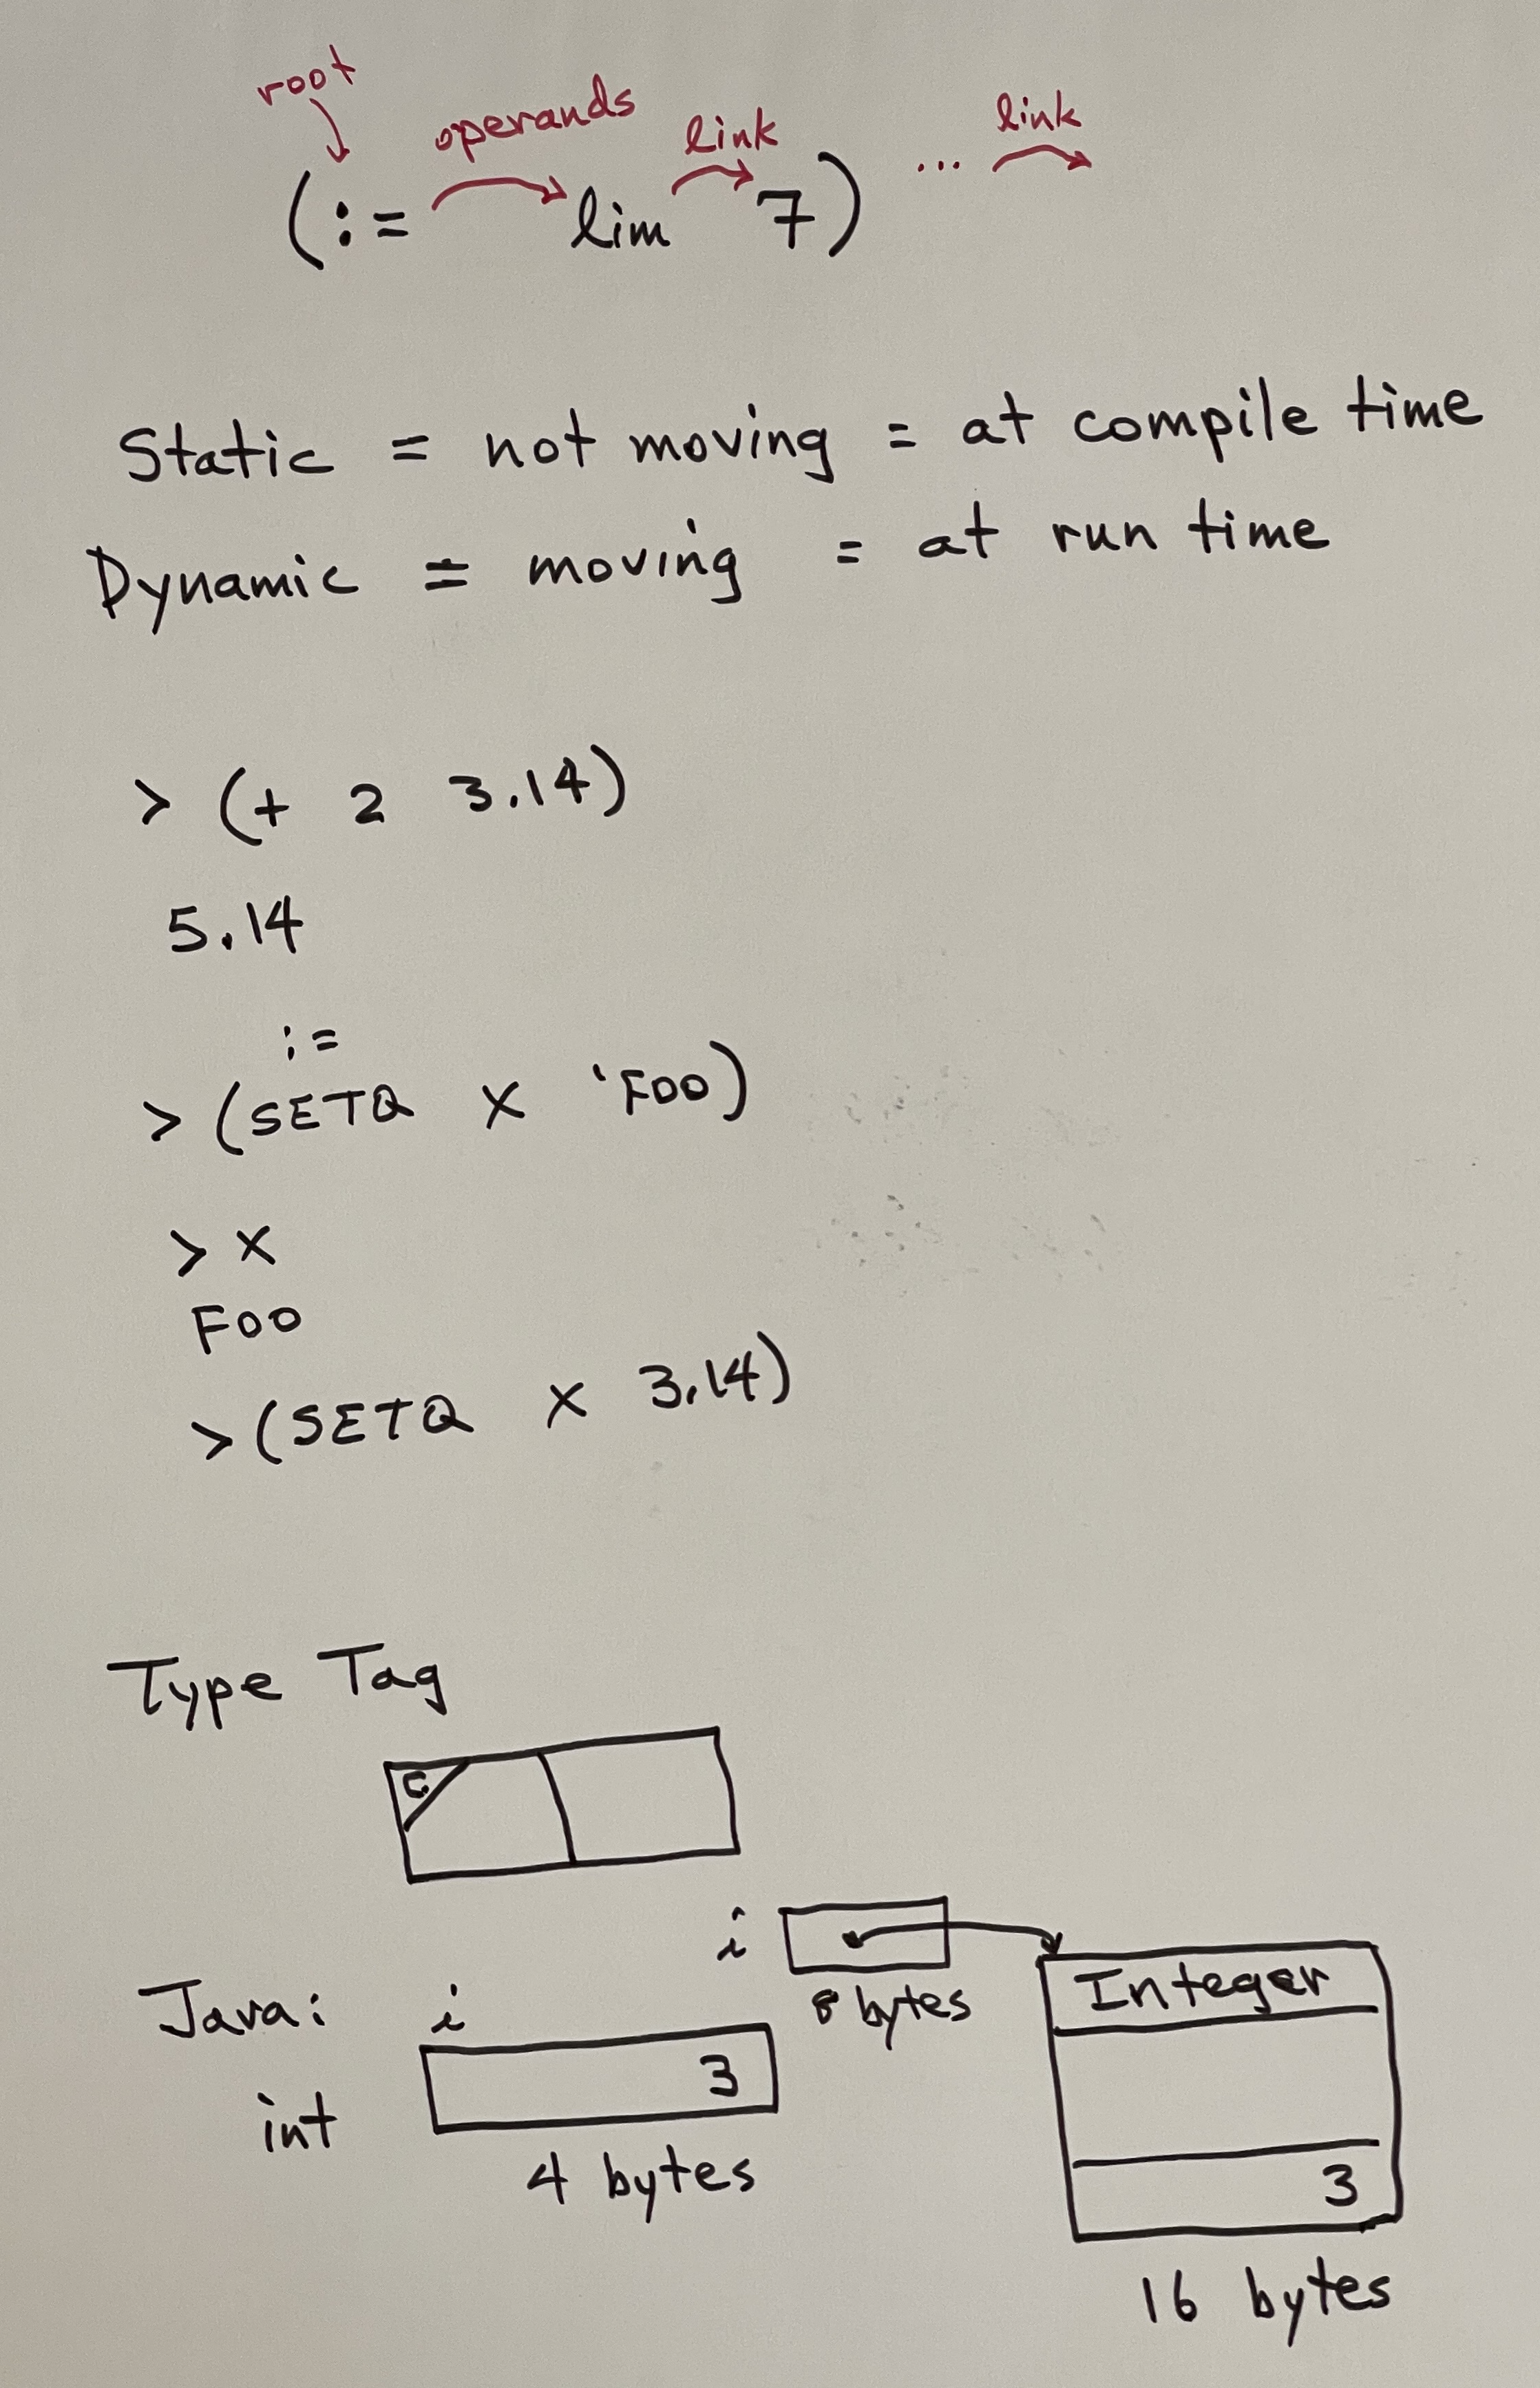 root
operands
link
... link
(:= lim 7)
Static = not moving = at compile time
Dynamic = moving = at run time
> (+ 2 3.14)
5.14
:=
> (SETQ X 'FOO)
> X
FOO
> (SETQ X 3.14)
Type Tag
C
i
Integer
8 bytes
Java: i
3
int
4 bytes
3
16 bytes